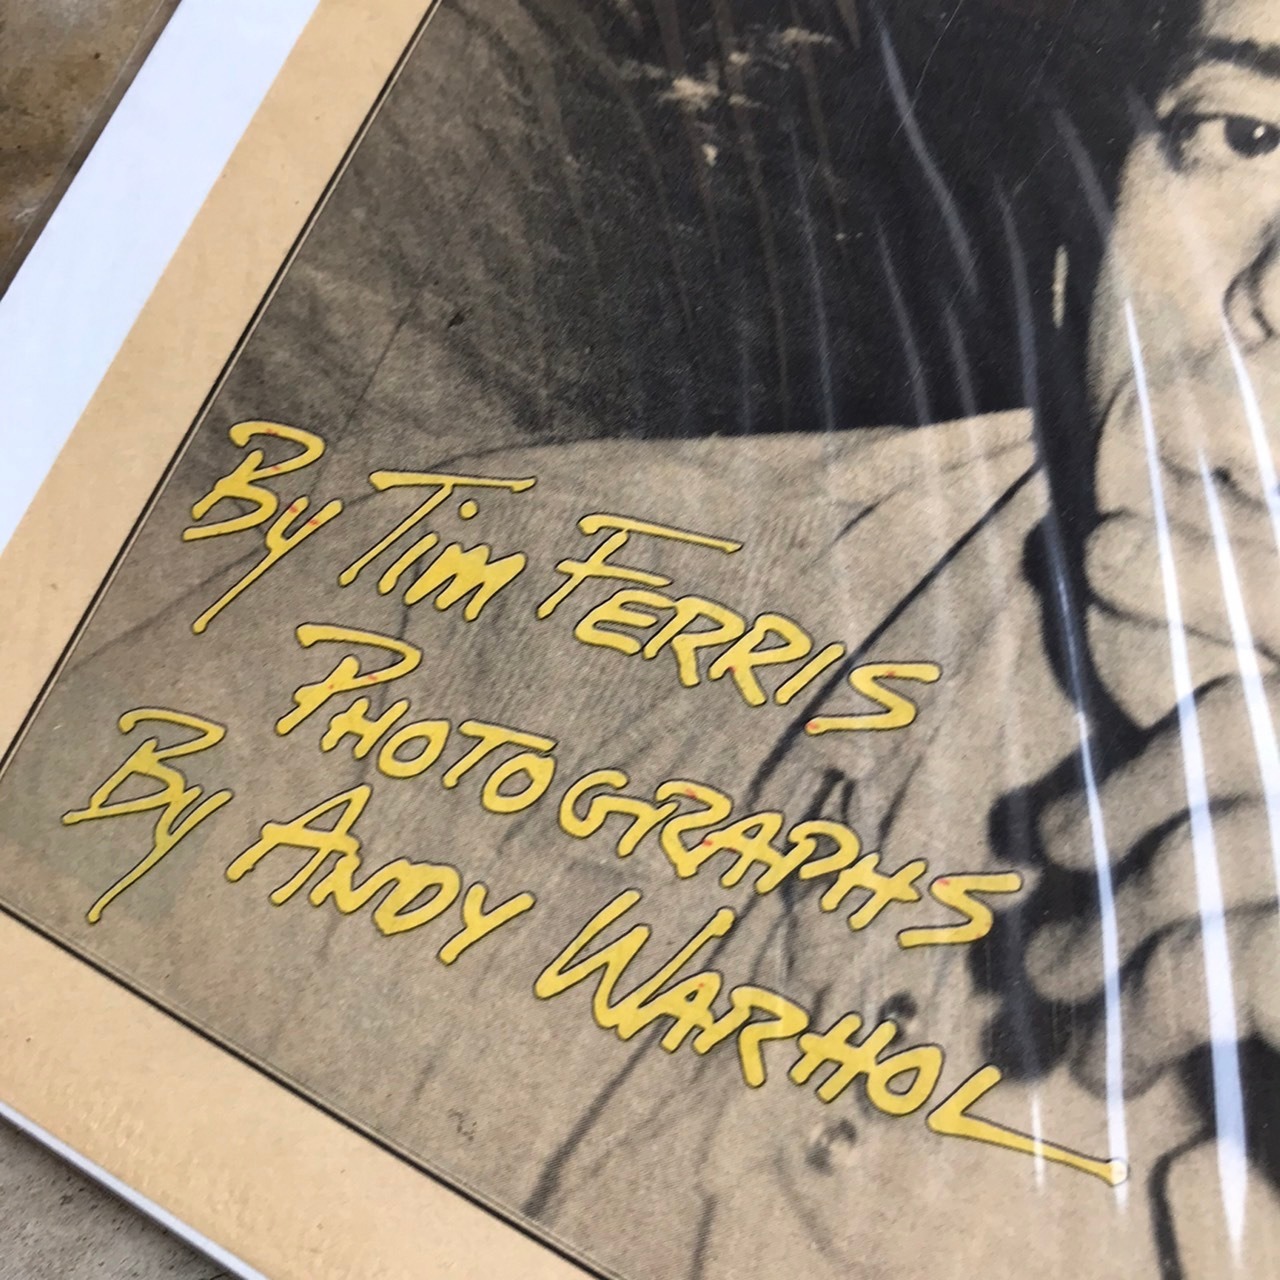 By Tim FERRIS
PHOTOGRAPHS
By ANDY WARHOL